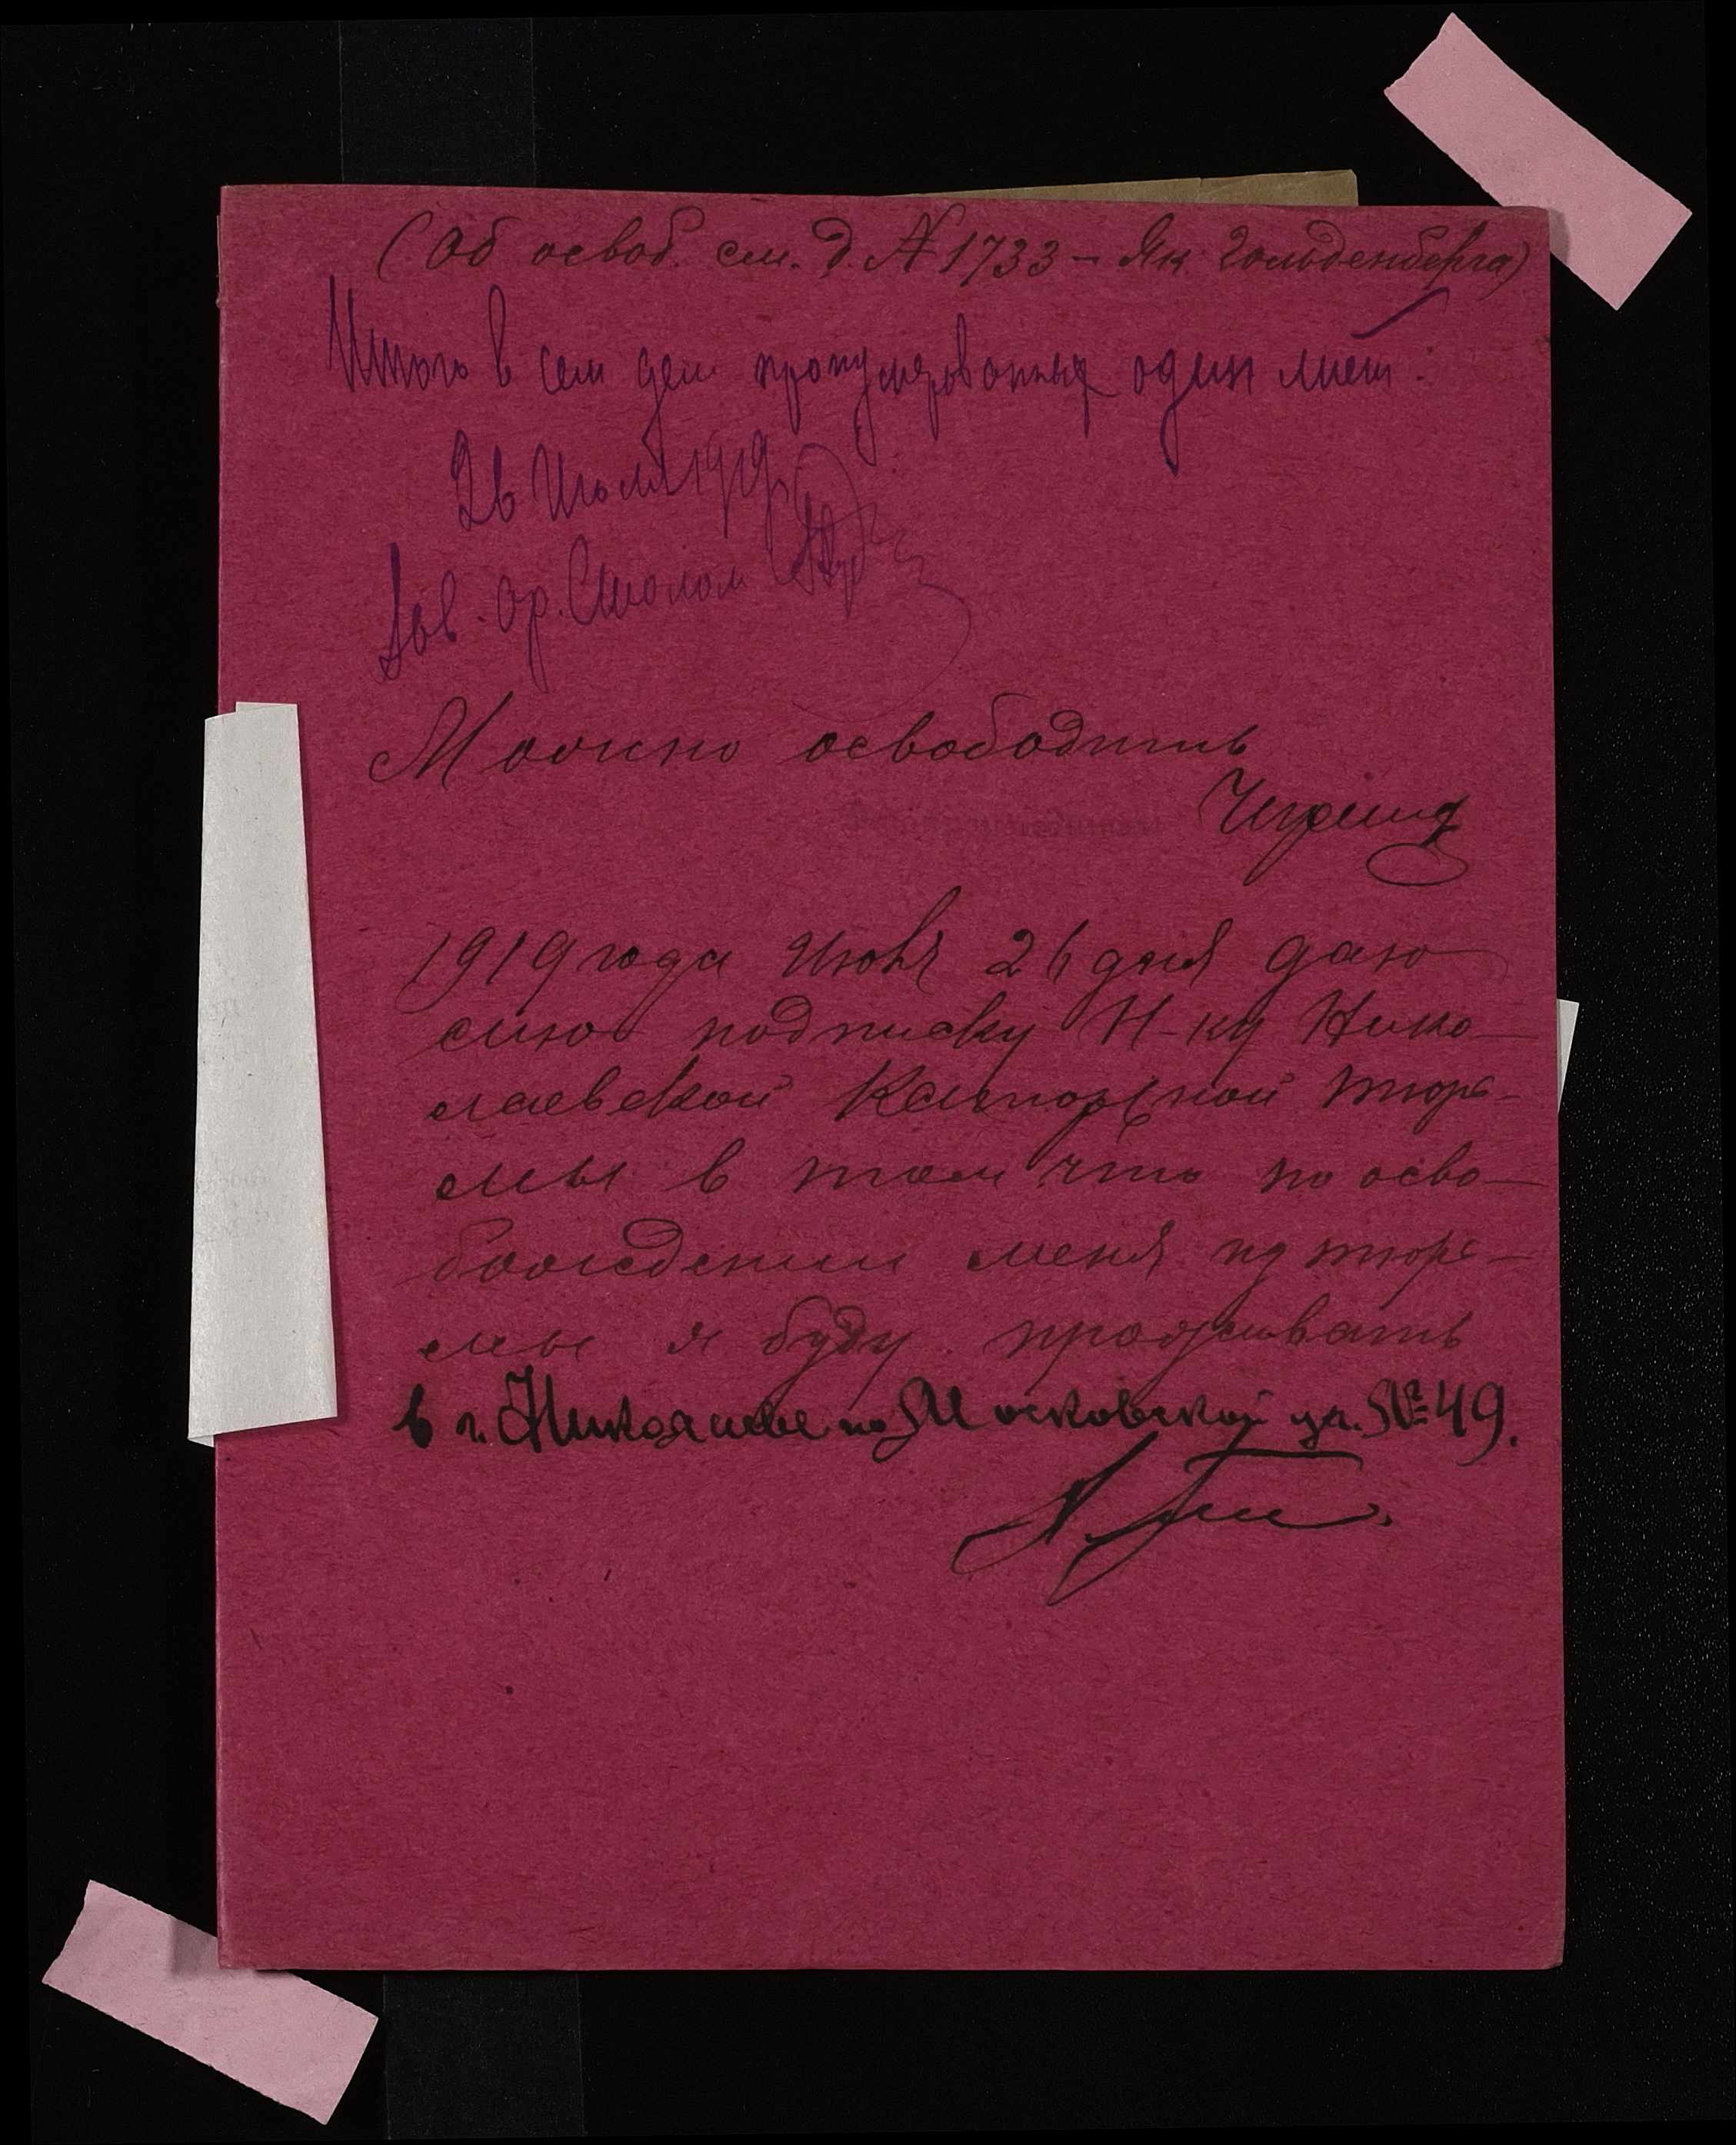 (Об освоб. см. д. № 1733 – Як. Гольденберга)
Итого в сем деле пронумерованных один лист.
26 Июля 1919 г.
Зав. ар. Столом
Можно освободить
1919 года Июля 26 дня даю
сию подписку Н-ку Нико-
лаевской Каторжной тюрь-
мы в том что по осво-
бождении меня из тюрь-
мы я буду проживать
в г. Николаеве по Московской ул. № 49.